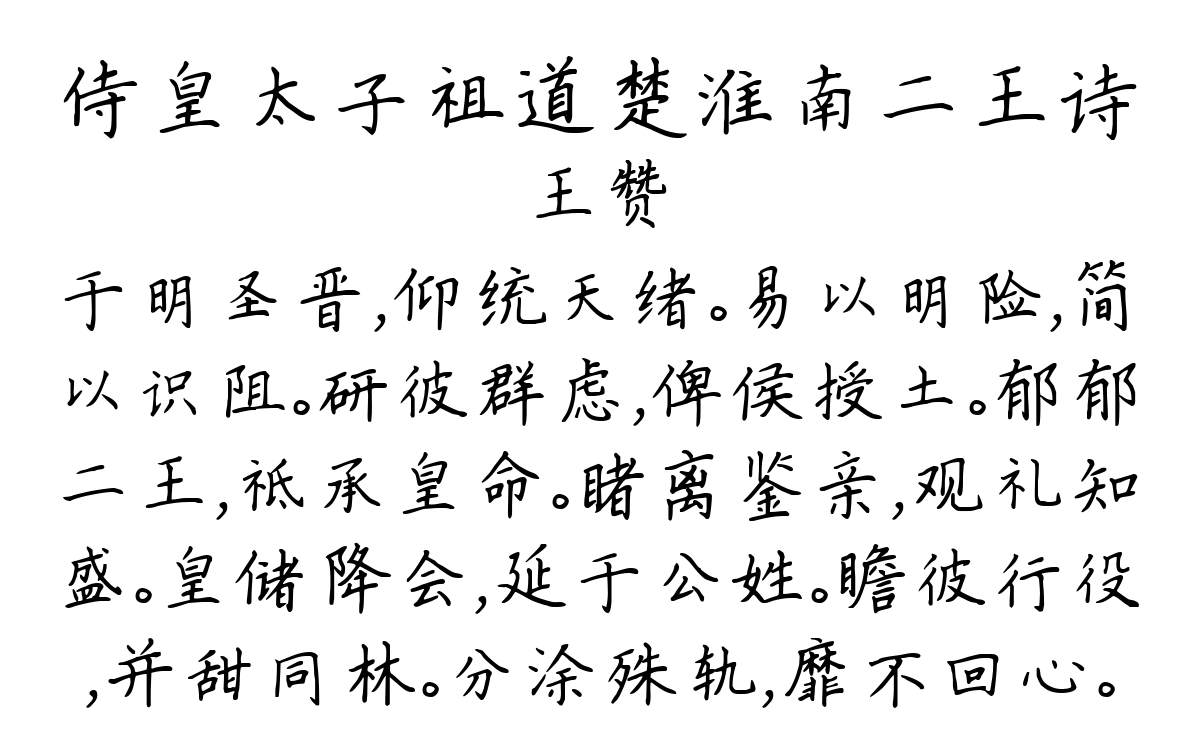 侍皇太子祖道楚淮南二王诗
王赞
于明圣晋,仰统天绪。易以明险,简
以识阻。研彼群虑,俾侯授土。郁郁
二王,祗承皇命。睹离鉴亲,观礼知
盛。皇储降会,延于公姓。瞻彼行役
,并甜同林。分涂殊轨,靡不回心。